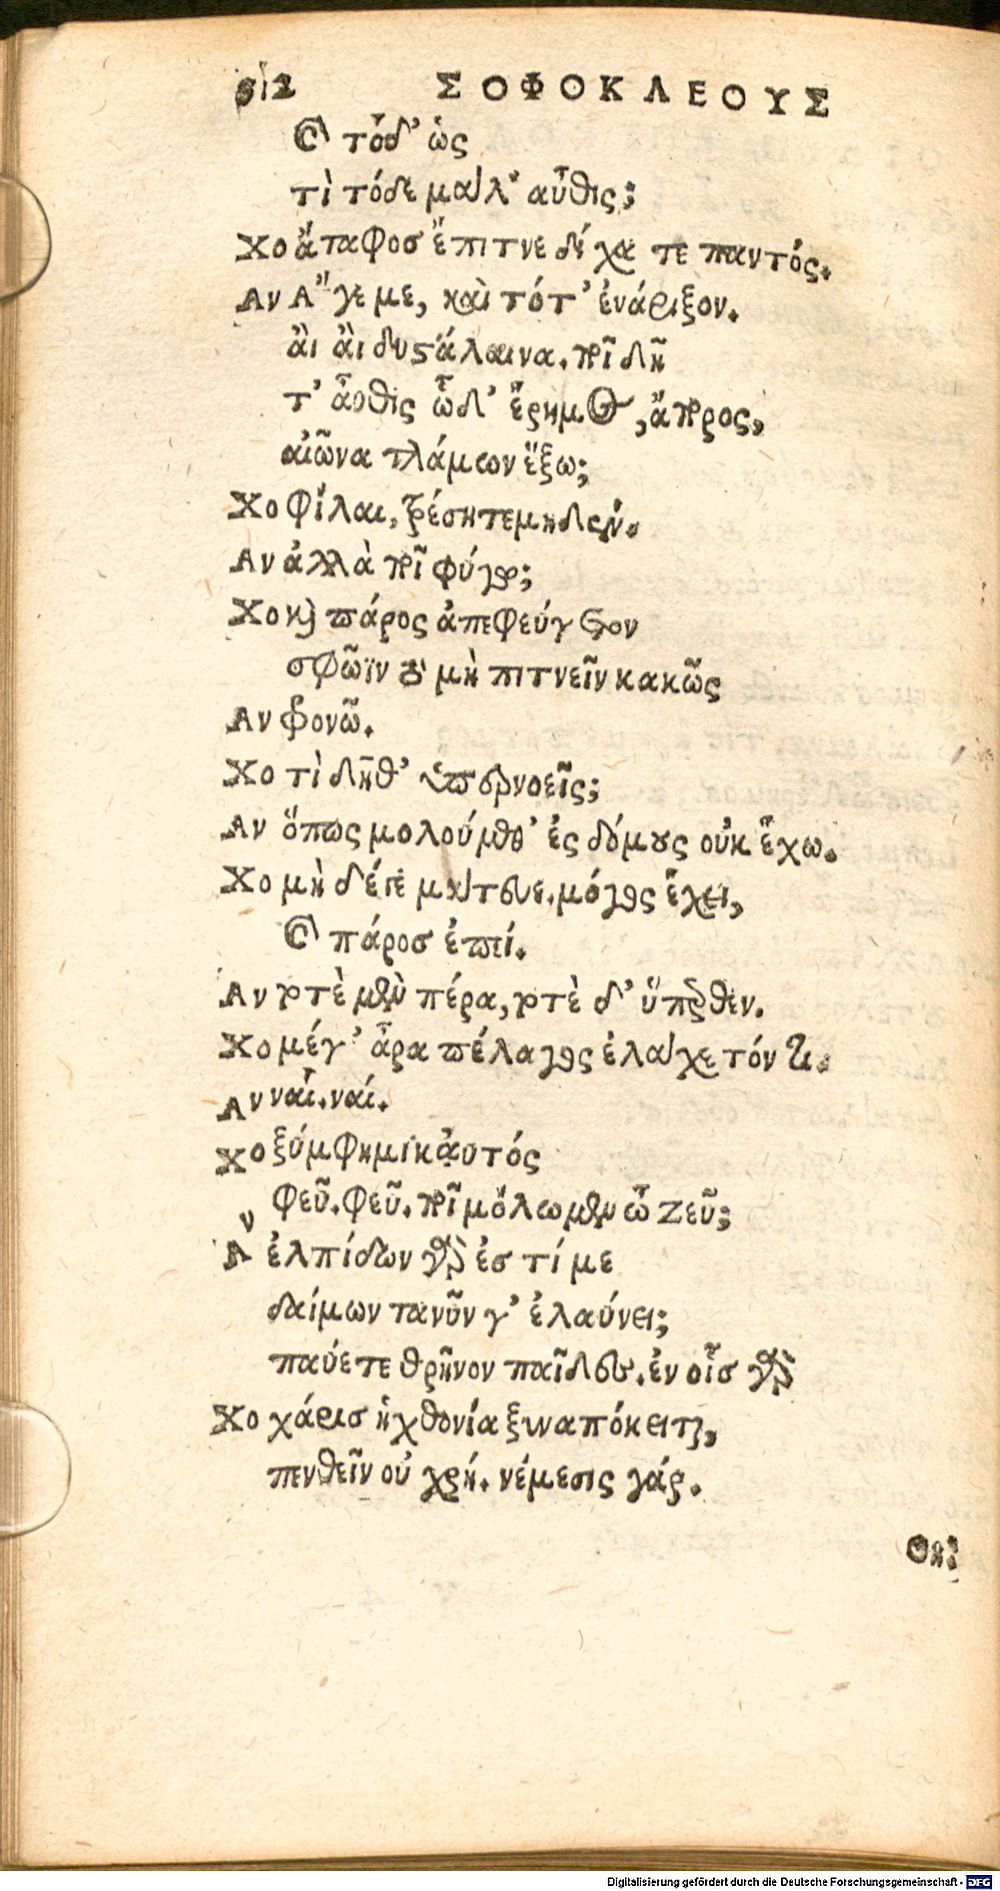 512 ΣΟΦΟΚΛΕΟΥΣ
Χο τόδ' ὡς
τὶ τόδε μάλ' αὖθις;
Χο ἄταφοσ ἔπιτνε δίχα τε παντός.
Αν Ἄγε με, καὶ τότ' ἐνάριξον.
ἂι ἂι δυστάλαινα. ποῖ δῆ
τ' αὖθις ὧδ' ἔρημος, ἄπορος,
αἰῶνα τλάμων ἕξω;
Χο φίλαι, τρέσητε μηδὲν.
Αν ἀλλὰ ποῖ φύγω;
Χο καὶ πάρος ἀπεφεύγετον
σφῶϊν τὸ μὴ πιτνεῖν κακῶς
Αν φρονῶ.
Χο τὶ δῆθ' ὑπερνοεῖς;
Αν ὅπως μολούμεθ' ἐς δόμους οὐκ ἔχω.
Χο μὴ δέ γε μάτευε. μόγος ἔχει,
πάροσ ἐπεί.
Αν τοτὲ μὲν πέρα, τοτὲ δ' ὕπερθεν.
Χο μέγ' ἆρα πέλαγος ἐλάχετόν τι.
Αν ναί. ναί.
Χο ξύμφημι καὐτός
φεῦ. φεῦ. ποῖ μόλωμεν ὦ Ζεῦ;
Αν ἐλπίδων γὰρ ἐσ τί με
δαίμων τανῦν γ' ἐλαύνει;
παύετε θρῆνον παῖδες. ἐν οἷσ γὰρ
Χο χάρισ ἡ χθονία ξυναπόκειται,
πενθεῖν οὐ χρή. νέμεσις γάρ.
Θη:
Digitalisierung gefördert durch die Deutsche Forschungsgemeinschaft - DFG